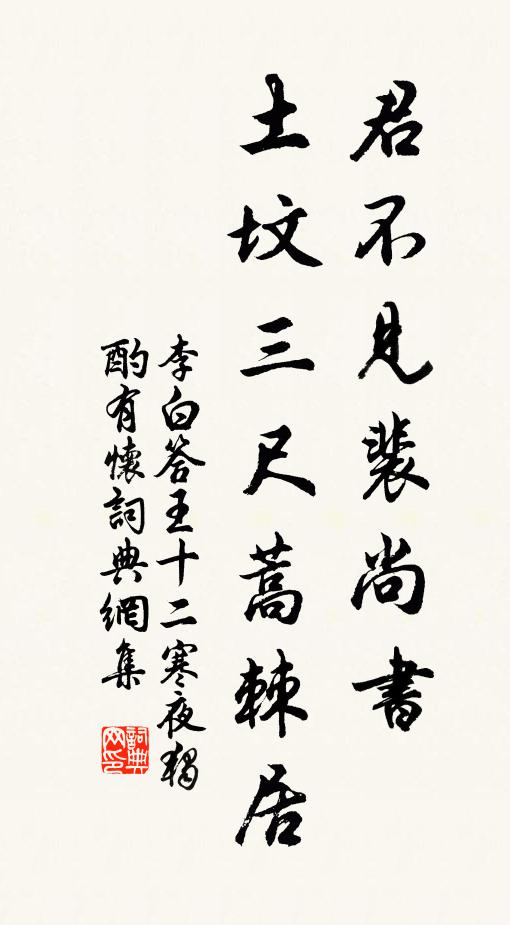 君不見裴尚書
土墳三尺蒿棘居
李白答王十二寒夜獨
酌有懷詞典網集
詞典
网印